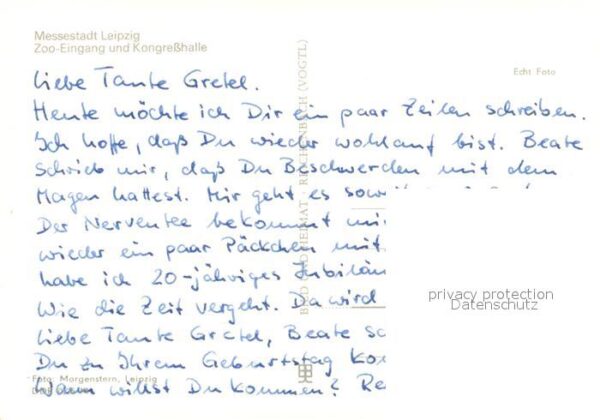 Messestadt Leipzig
Zoo-Eingang und Kongreßhalle
Echt Foto
Liebe Tante Gretel.
Heute möchte ich Dir ein paar Zeilen schreiben.
Ich hoffe, daß Du wieder wohlauf bist. Beate
schrieb mir, daß Du Beschwerden mit dem
Magen hattest. Mir geht es
Der Nerventee bekommt
wieder ein paar Päckchen
habe ich 20-jähriges
Wie die Zeit vergeht. Da wird
Liebe Tante Gretel, Beate
Du zu Ihrem Geburtstag
Wann willst Du kommen?
Foto: Morgenstern, Leipzig
BILD UND HEIMAT · REICHENBACH (VOGTL)
privacy protection
Datenschutz